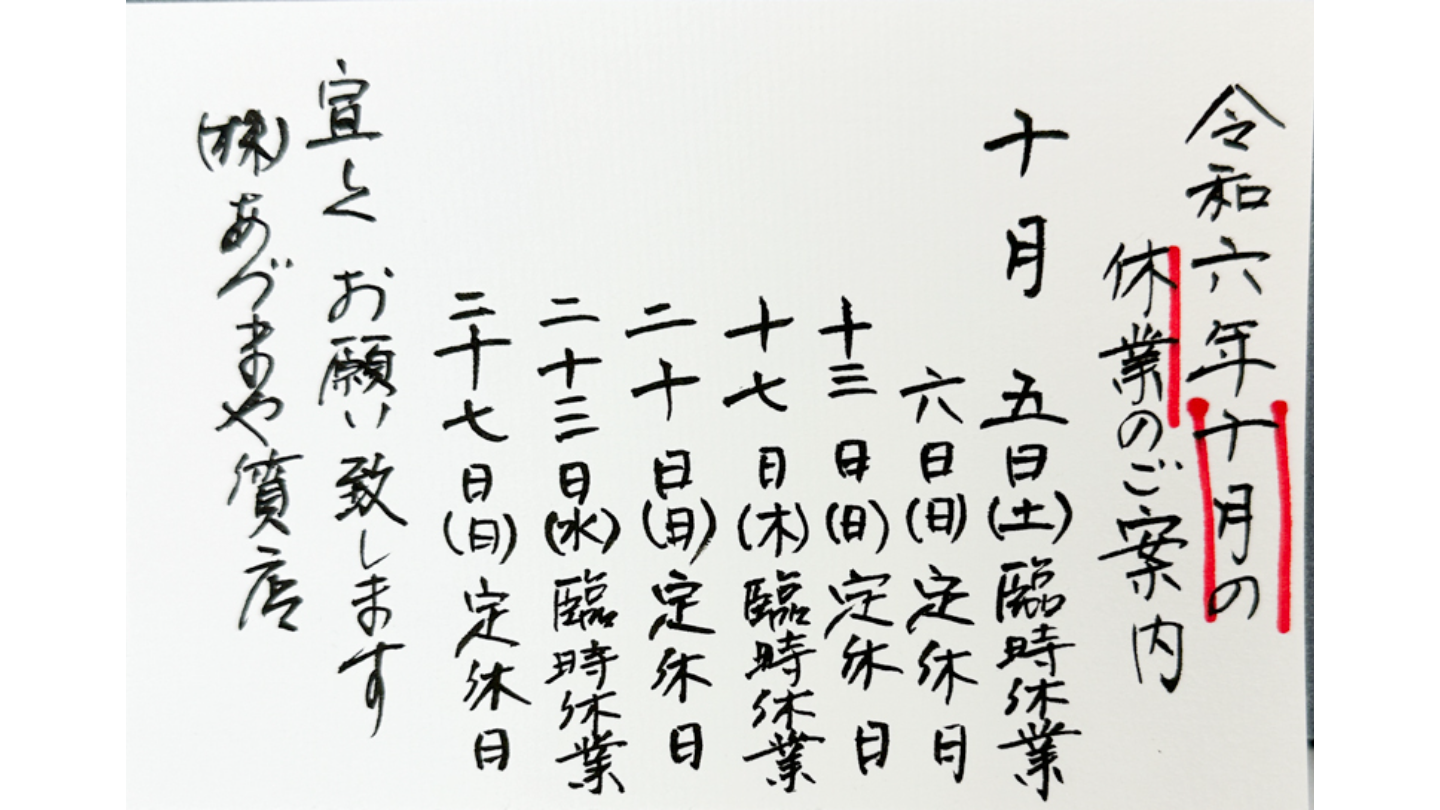 令和六年十月の
休業のご案内
十月 五日(土)臨時休業
六日(日)定休日
十三日(日)定休日
十七日(木)臨時休業
二十日(日)定休日
二十三日(水)臨時休業
二十七日(日)定休日
宜しくお願い致します
(株)あづまや質店